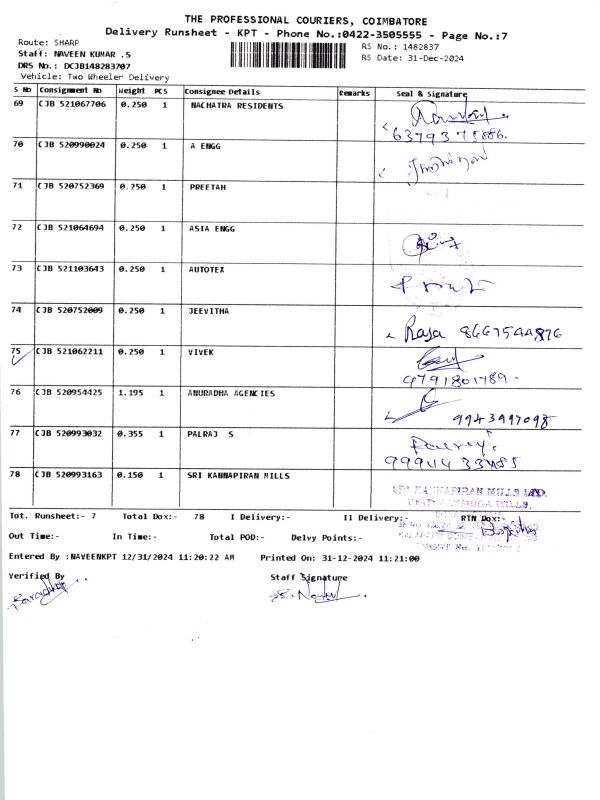 THE PROFESSIONAL COURIERS, COIMBATORE
Delivery Runsheet - KPT - Phone No.:0422-3505555 - Page No.:7
Route: SHARP
RS No.: 1482837
Staff: NAVEEN KUMAR .S
RS Date: 31-Dec-2024
DRS No.: DCJB148283707
Vehicle: Two Wheeler Delivery
S No Consignment No Weight PCS Consignee Details Remarks Seal & Signature
69 CJB 521067706 0.250 1 NACHATRA RESIDENTS
6379375886.
70 CJB 520990024 0.250 1 A ENGG
71 CJB 520752369 0.250 1 PREETAH
72 CJB 521064694 0.250 1 ASIA ENGG
73 CJB 521103643 0.250 1 AUTOTEX
74 CJB 520752009 0.250 1 JEEVITHA
Raja 8667544876
75 CJB 521062211 0.250 1 VIVEK
4791801789-
76 CJB 520954425 1.195 1 ANURADHA AGENCIES
9943997098
77 CJB 520993032 0.355 1 PALRAJ S
99944 33485
78 CJB 520993163 0.150 1 SRI KANNAPIRAN MILLS
SRI KANNAPIRAN MILLS LTD.
Tot. Runsheet:- 7 Total Dox:- 78 I Delivery:- II Delivery:- RTN Dox:-
Out Time:- In Time:- Total POD:- Delvy Points:-
Entered By :NAVEENKPT 12/31/2024 11:20:22 AM Printed On: 31-12-2024 11:21:00
Verified By Staff Signature